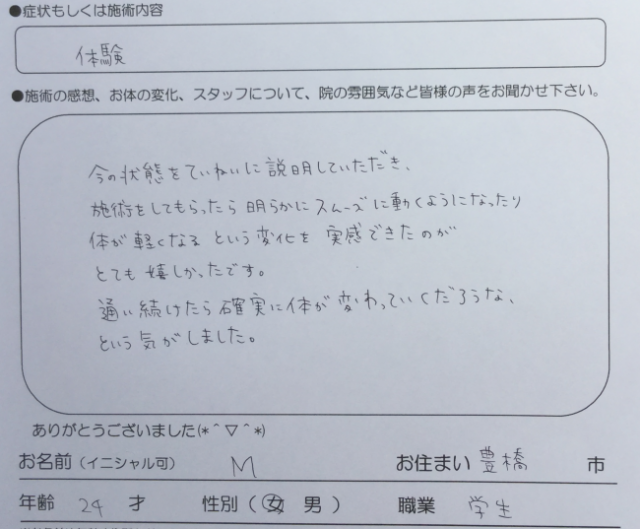 ●症状もしくは施術内容
体験
●施術の感想、お体の変化、スタッフについて、院の雰囲気など皆様の声をお聞かせ下さい。
今の状態をていねいに説明していただき、
施術をしてもらったら明らかにスムーズに動くようになったり
体が軽くなるという変化を実感できたのが
とても嬉しかったです。
通い続けたら確実に体が変わっていくだろうな、
という気がしました。
ありがとうございました(*^▽^*)
お名前（イニシャル可） M お住まい 豊橋 市
年齢 24 才 性別（ 女 男 ） 職業 学生